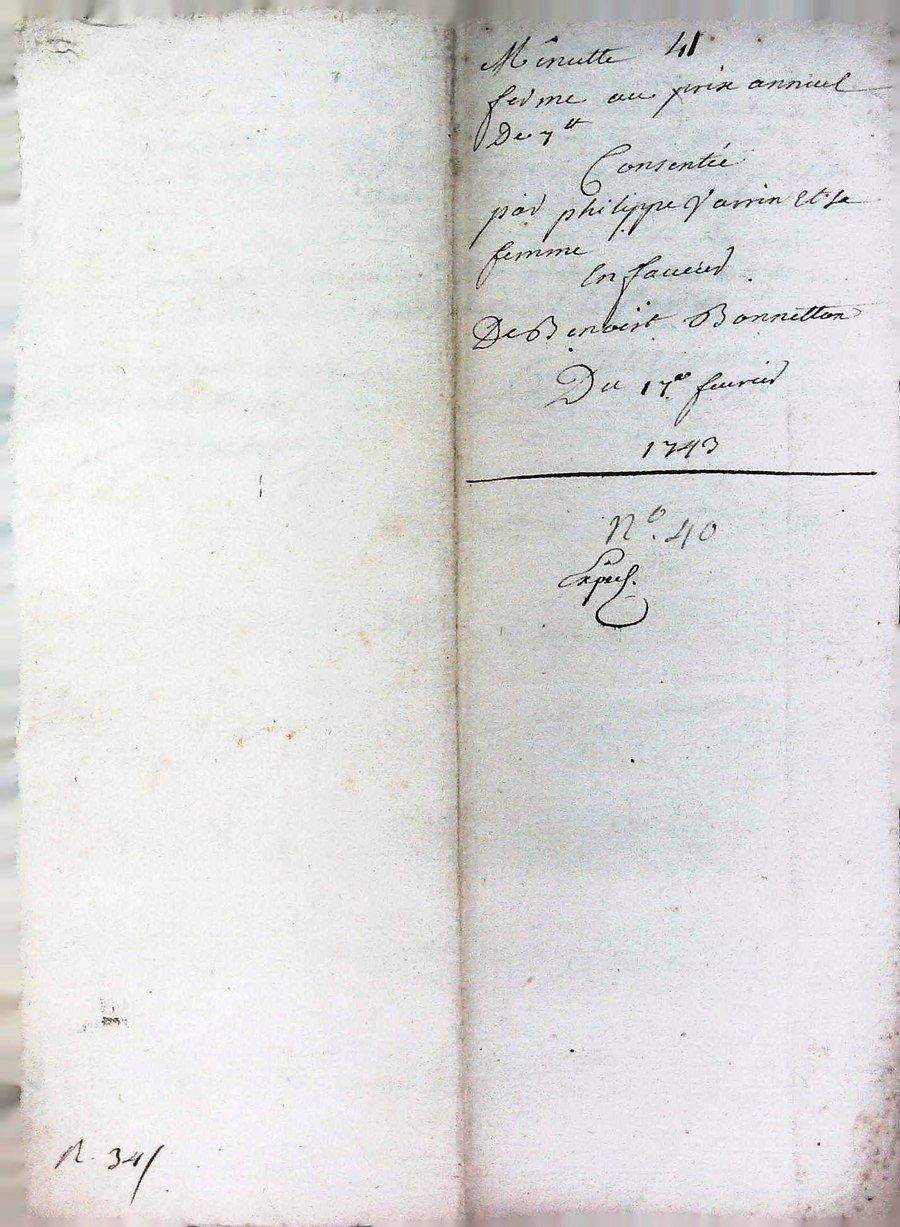 Minutte 41
ferme au prix annuel
De 7 tt
Consentée
par philippe Varrin Et sa
femme
En faveur
De Benoist Bonnetton
Du 17e fevrier
1743
N.o 40
Expéd.
R. 34